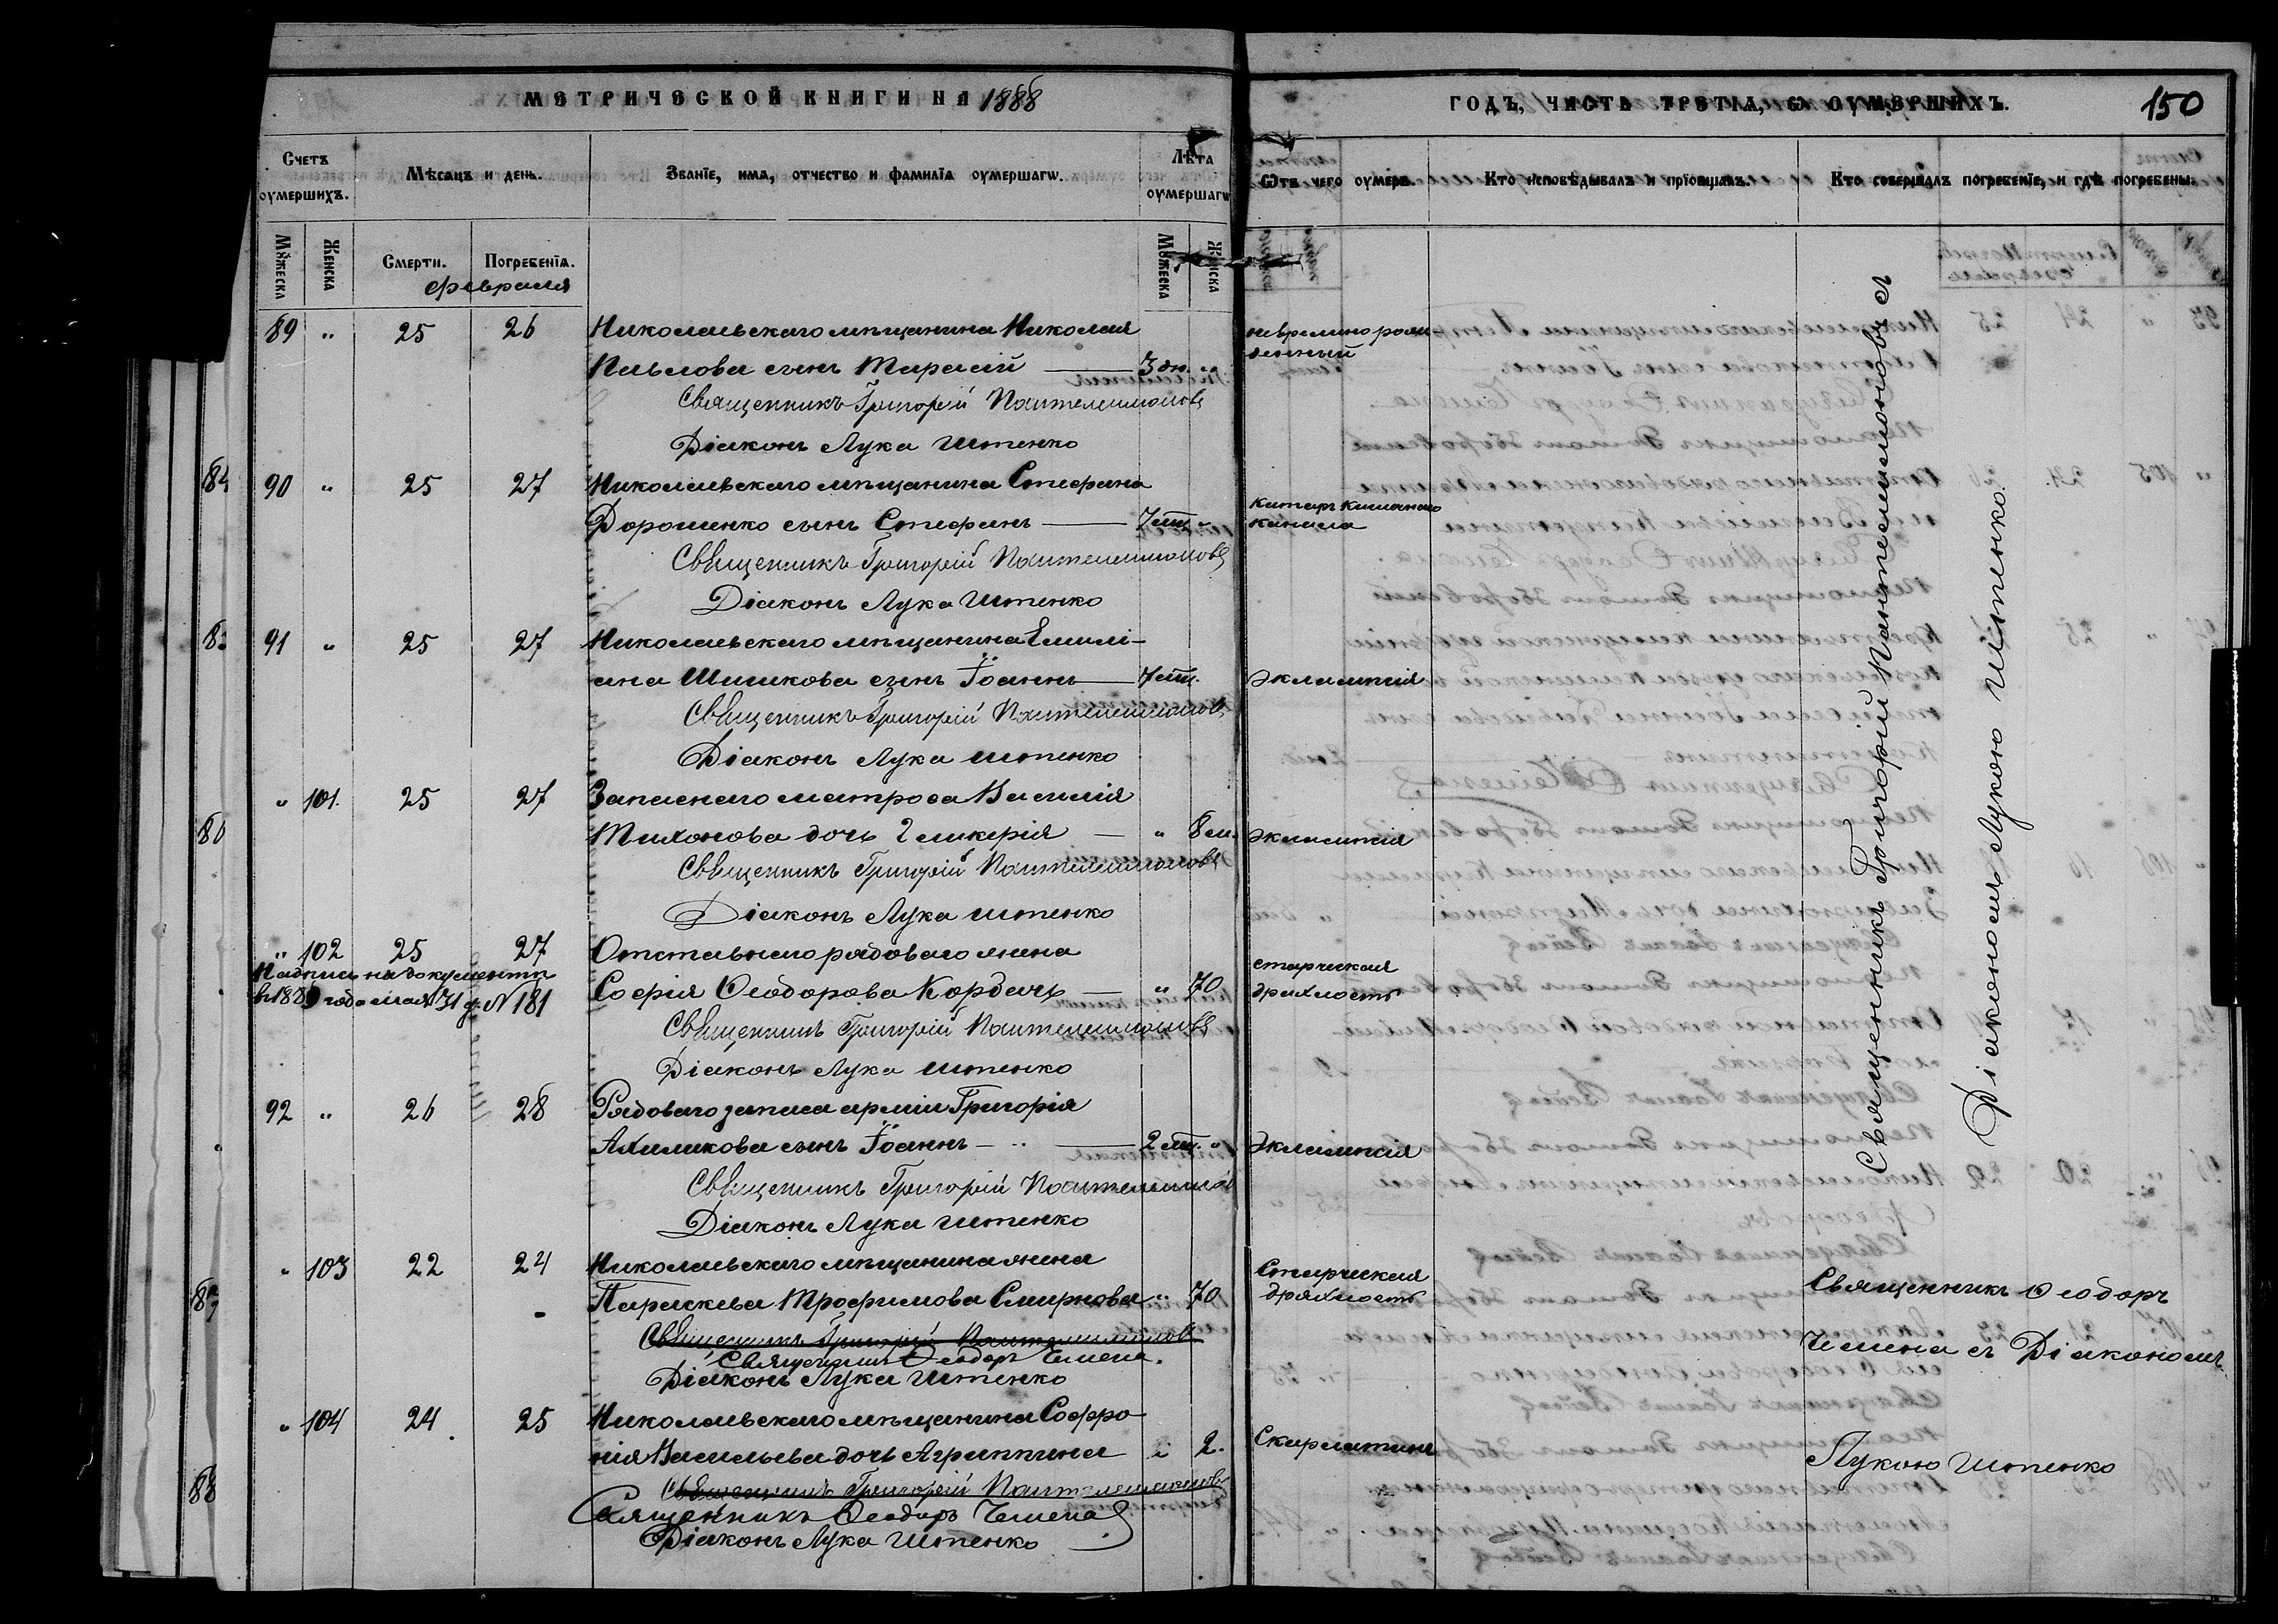 МЕТРИЧЕСКОЙ КНИГИ НА 1888
ГОДЪ, ЧАСТЬ ТРЕТІА, Ѡ ОУМЕРШИХЪ.
150
Счетъ оумершихъ.
Мѣсяцъ и день.
Званїе, има, отчество и фамилїа оумершагѡ.
Лѣта оумершагѡ
Ѿтъ чего оумеръ.
Кто исповѣдывалъ и прїобщалъ.
Кто совершалъ погребенїе, и гдѣ погребены.
Мꙋжеска
Женска
Смерти.
Погребенїа.
Мꙋжеска
Женска
февраля
89 " 25 26 Николаевскаго мѣщанина Николая
Павлова сынъ Тарасій — 3 дн. "
невременно рож
денный
Священникъ Григорій Пантелеимоновъ
Діаконъ Лука Штенко
90 " 25 27 Николаевскаго мѣщанина Стефана
Дорошенко сынъ Стефанъ — 7 м. "
катаръ кишечнаго
канала
Священникъ Григорій Пантелеимоновъ
Діаконъ Лука Штенко
91 " 25 27 Николаевскаго мѣщанина Емилі-
ана Шишкова сынъ Іоаннъ — 7 м.
эклампсія
Священникъ Григорій Пантелеимоновъ
Діаконъ Лука Штенко
" 101. 25 27 Запаснаго матроса Василія
Тихонова дочь Гликерія — " 8 м.
эклампсія
Священникъ Григорій Пантелеимоновъ
Діаконъ Лука Штенко
" 102 25 27 Отставнаго рядоваго жена
Софія Ѳеодорова Кордачъ — " 70
старческая
дряхлость
Надпись на документѣ
года мая 31 д. N 181
Священникъ Григорій Пантелеимоновъ
Діаконъ Лука Штенко
92 " 26 28 Рядоваго запаса арміи Григорія
Ахимикова сынъ Іоаннъ — 2 м. "
эклампсія
Священникъ Григорій Пантелеимоновъ
Діаконъ Лука Штенко
" 103 22 24 Николаевскаго мѣщанина жена
Параскева Трофимова Смирнова " 70
Старческая
дряхлость
Священникъ Григорій Пантелеимоновъ
Священникъ Ѳеодоръ Чемена.
Діаконъ Лука Штенко
" 104 24 25 Николаевскаго мѣщанина Софро-
нія Васильева дочь Агриппина " 2.
Скарлатина
Священникъ Григорій Пантелеимоновъ
Священникъ Ѳеодоръ Чемена
Діаконъ Лука Штенко
Священникъ Григорій Пантелеимоновъ съ
Діакономъ Лукою Штенко.
Священникъ Ѳеодоръ
Чемена съ Діакономъ
Лукою Штенко